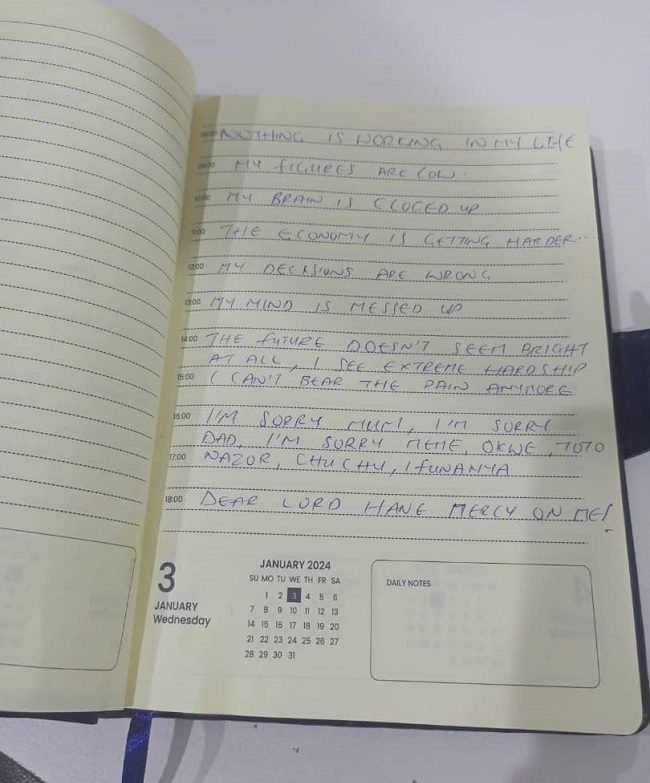 08:00 NOTHING IS WORKING IN MY LIFE
09:00 MY FIGURES ARE LOW.
10:00 MY BRAIN IS CLOGED UP
11:00 THE ECONOMY IS GETTING HARDER...
12:00 MY DECISIONS ARE WRONG
13:00 MY MIND IS MESSED UP
14:00 THE FUTURE DOESN'T SEEM BRIGHT
AT ALL, I SEE EXTREME HARDSHIP
15:00 I CAN'T BEAR THE PAIN ANYMORE
16:00 I'M SORRY MUM, I'M SORRY
DAD, I'M SORRY MEME, OKWE, TOTO
17:00 NAZOR, CHUCHU, IFUNANYA
18:00 DEAR LORD HAVE MERCY ON ME!
3
JANUARY
Wednesday
JANUARY 2024
SU MO TU WE TH FR SA
1 2 3 4 5 6
7 8 9 10 11 12 13
14 15 16 17 18 19 20
21 22 23 24 25 26 27
28 29 30 31
DAILY NOTES